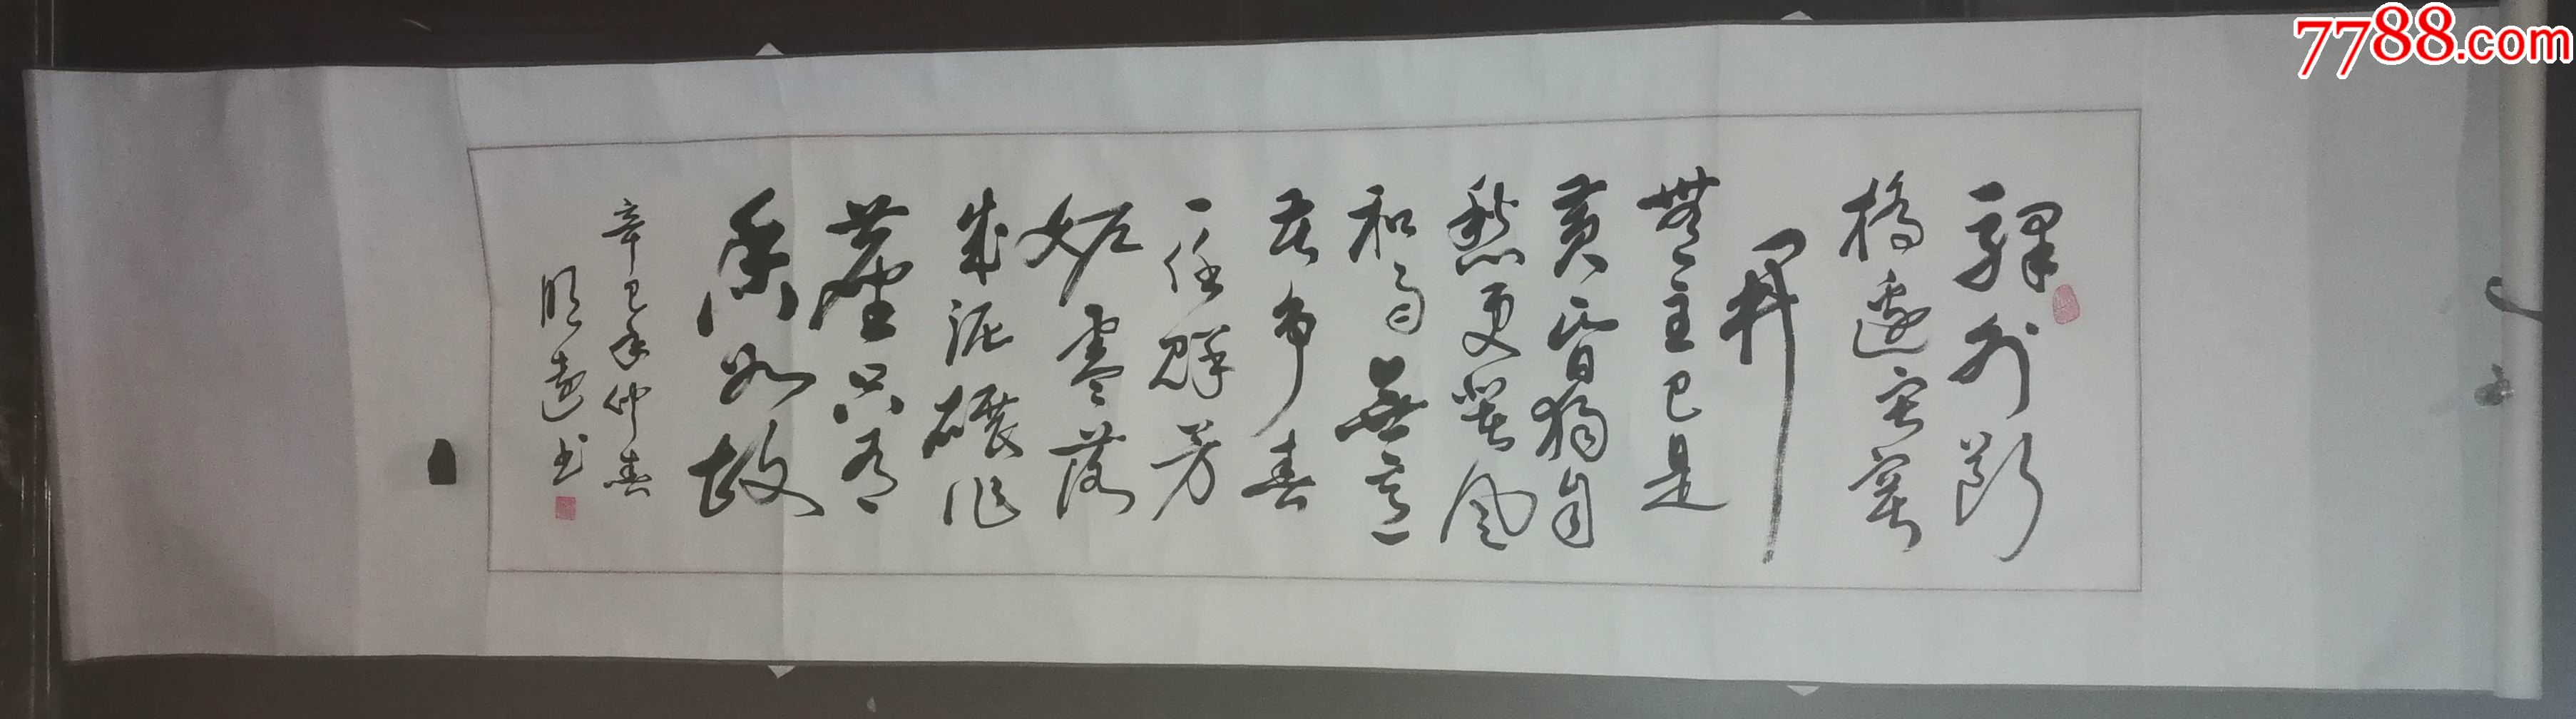 驛外斷
橋邊寂寞
開
無主已是
黃昏獨自
愁更著風
和雨無意
苦爭春
一任群芳
妒零落
成泥碾作
塵只有
香如故
辛巳年仲春
明遠书
7788.com